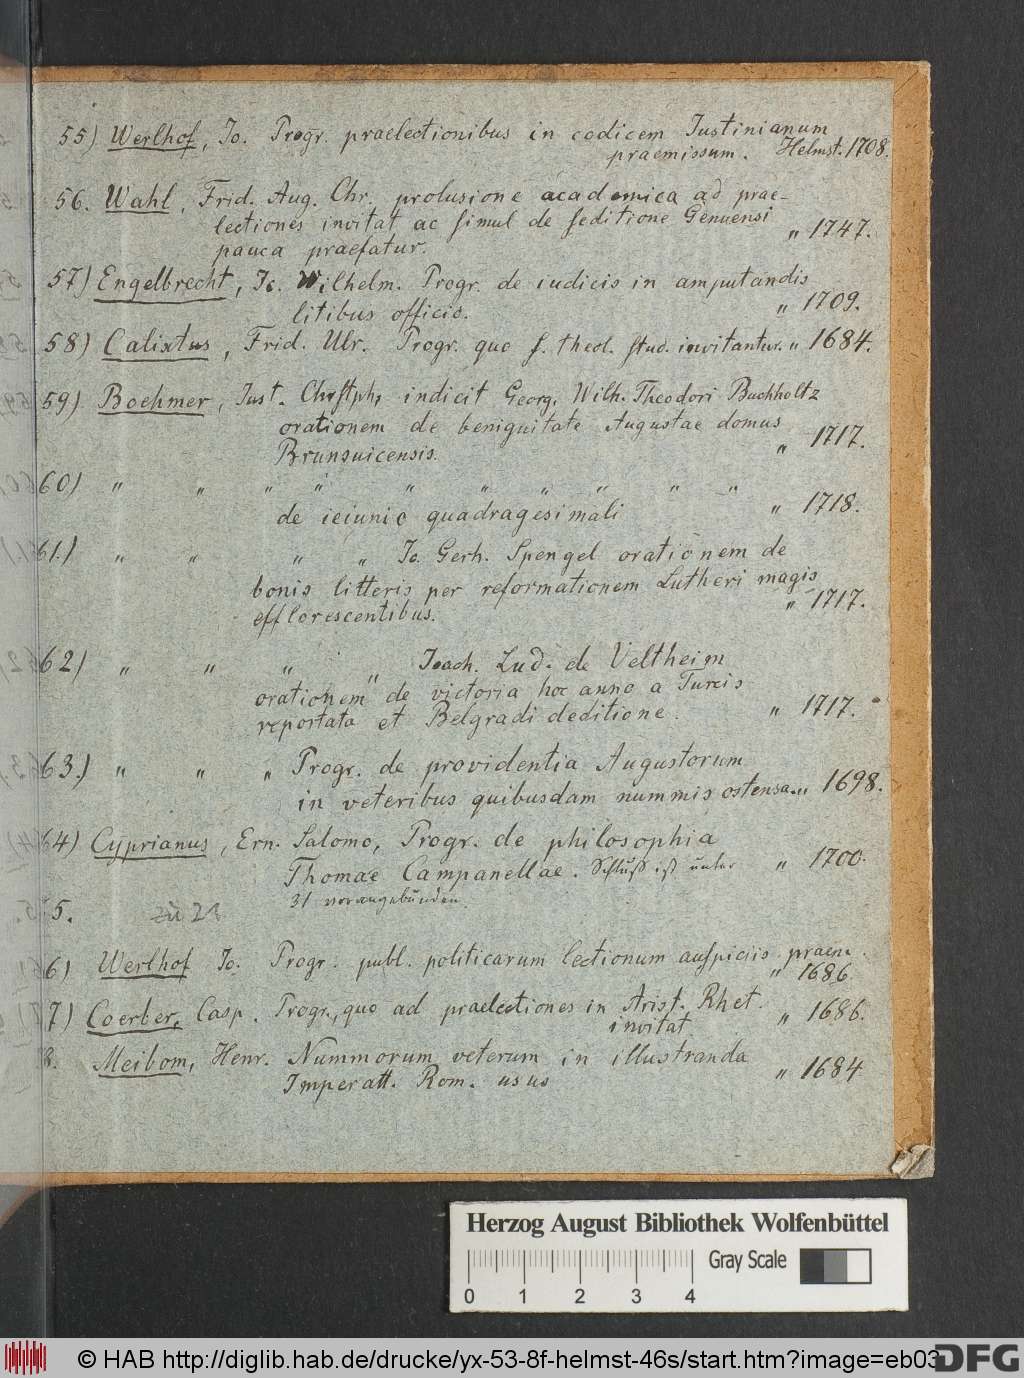 55) Werlhof, Io. Progr. praelectionibus in codicem Iustinianum
praemissum. Helmst. 1708.
56. Wahl, Frid. Aug. Chr. prolusione academica ad prae-
lectiones invitat ac simul de seditione Genuensi
pauca praefatur. " 1747.
57) Engelbrecht, Io. Wilhelm. Progr. de iudicis in amputandis
litibus officio. " 1709.
58) Calixtus, Frid. Ulr. Progr. quo s. theol. stud. invitantur. " 1684.
59) Boehmer, Iust. Chrstph, indicit Georg. Wilh. Theodori Buchholtz
orationem de benignitate Augustae domus
Brunsuicensis. " 1717.
60) " " " " " " " " " "
de ieiunio quadragesimali " 1718.
61.) " " " " Io. Gerh. Spengel orationem de
bonis litteris per reformationem Lutheri magis
efflorescentibus. " 1717.
62) " " " " Ioach. Lud. de Veltheim
orationem de victoria hoc anno a Turcis
reportata et Belgradi deditione. " 1717.
63.) " " " Progr. de providentia Augustorum
in veteribus quibusdam nummis ostensa. " 1698.
64) Cyprianus, Ern. Salomo, Progr. de philosophia
Thomae Campanellae. Schluß ist unter " 1700.
31 vorangebunden.
5. zu 23
6) Werlhof Io. Progr. publ. politicarum lectionum auspiciis praem.
" 1686.
7) Coerber, Casp. Progr., quo ad praelectiones in Arist. Rhet.
invitat " 1686.
8. Meibom, Henr. Nummorum veterum in illustranda
Imperatt. Rom. usus " 1684
Herzog August Bibliothek Wolfenbüttel
Gray Scale
0 1 2 3 4
© HAB http://diglib.hab.de/drucke/yx-53-8f-helmst-46s/start.htm?image=eb03
DFG